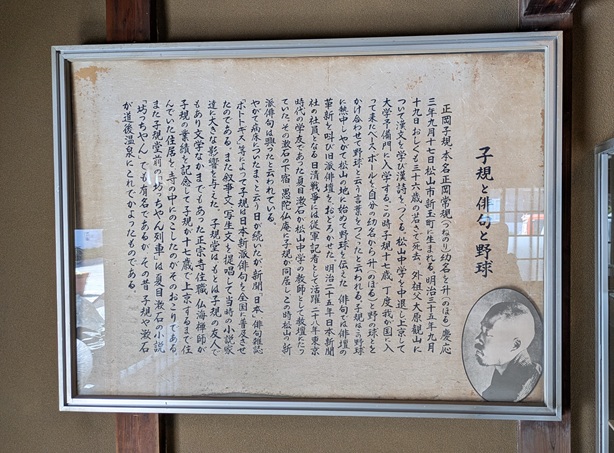 子規と俳句と野球
正岡子規、本名正岡常規(つねのり)幼名を升(のぼる)慶応
三年九月十七日松山市新玉町に生まれる。明治三十五年九月
十九日おしくも三十六歳の若さで死去、外祖父大原観山に
ついて漢文を学び漢詩をつくる。松山中学を中退し上京して
大学予備門に入学する。この時子規十七歳、丁度我が国に入
って来たベースボールを自分の幼名から升(のぼる)と野の球とを
かけ合わせて野球と云う言葉をつくったと云われる。子規は
に熱中しやがて松山の地に始めて野球を伝えた 俳句では俳壇の
革新を叫び旧派俳壇をおどろかせた。明治二十五年日本新聞
社の社員となる日清戦争には従軍記者として活躍 二十八年東京
時代の学友であった夏目漱石が松山中学の教師として教壇にたっ
ていた。その漱石の下宿 愚陀仏庵に子規が同居し、この時松山の新
派俳句は興ったと云われている。
やがて病床についたまゝと云う日が続いたが新聞「日本」俳句雑誌
ホトトギス等によって子規は日本新派俳句を全国に普及させ
たのである。また叙事文、写生文も提唱して当時の小説家
達に大きな影響を与えた。子規堂はもとは子規の友人で
もあり文学なかまでもあった正宗寺住職 仏海禅師が
子規の業績を記念して子規が十七歳で上京するまで住
んでいた住居を、寺の中にのこしたのがそのおこりである。
また子規堂前の坊っちゃん列車は夏目漱石の小説
「坊っちゃん」でも有名であるが、その昔子規や漱石
が道後温泉にこれでかよったものである。